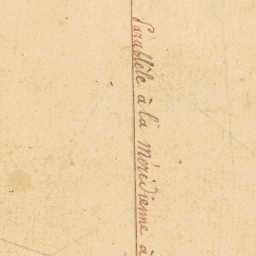 Parallèle à la méridienne à